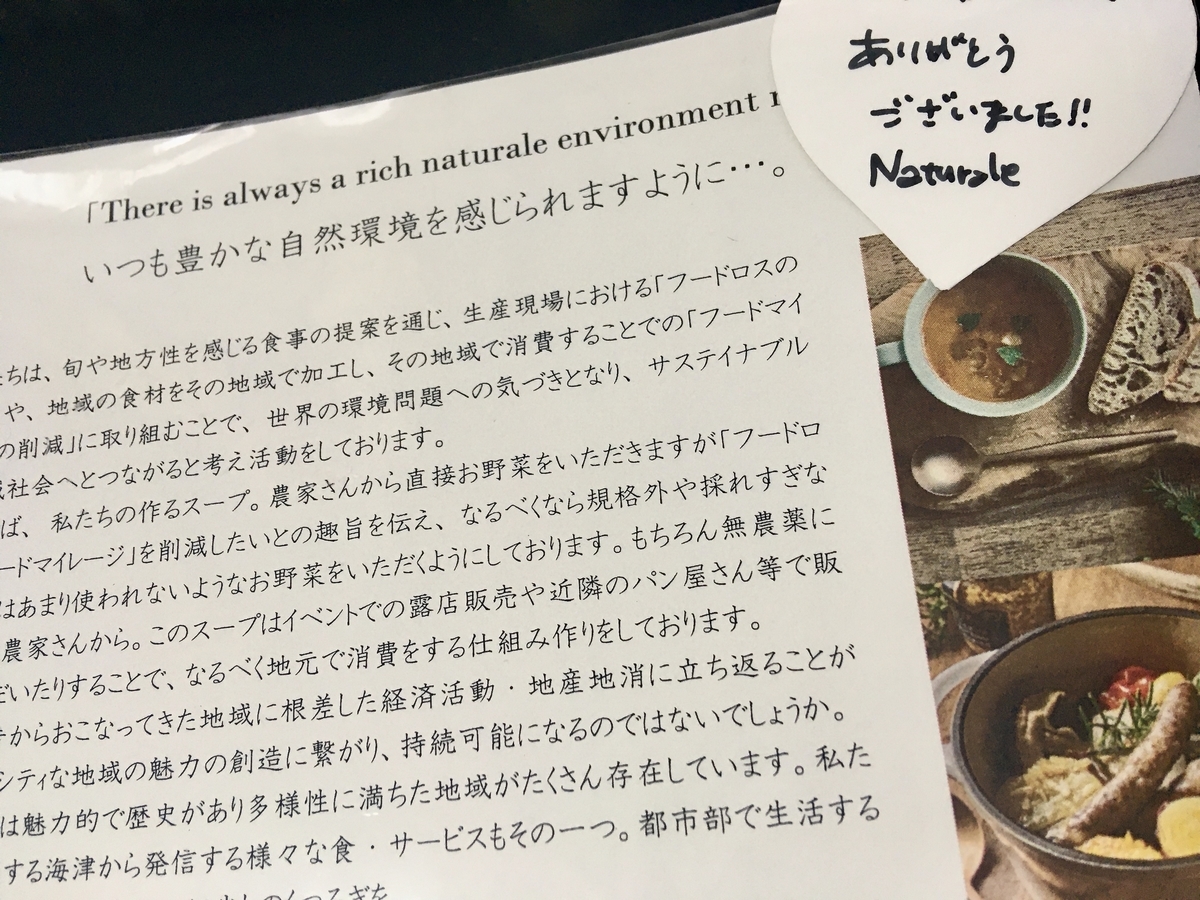 ありがとう
ございました!!
Naturale
「There is always a rich naturale environment
いつも豊かな自然環境を感じられますように…。
ちは、旬や地方性を感じる食事の提案を通じ、生産現場における「フードロスの
や、地域の食材をその地域で加工し、その地域で消費することでの「フードマイ
の削減」に取り組むことで、世界の環境問題への気づきとなり、サステイナブル
社会へとつながると考え活動をしております。
ば、私たちの作るスープ。農家さんから直接お野菜をいただきますが「フードロ
ードマイレージ」を削減したいとの趣旨を伝え、なるべくなら規格外や採れすぎな
はあまり使われないようなお野菜をいただくようにしております。もちろん無農薬に
農家さんから。このスープはイベントでの露店販売や近隣のパン屋さん等で販
だいたりすることで、なるべく地元で消費をする仕組み作りをしております。
からおこなってきた地域に根差した経済活動・地産地消に立ち返ることが
シティな地域の魅力の創造に繋がり、持続可能になるのではないでしょうか。
は魅力的で歴史があり多様性に満ちた地域がたくさん存在しています。私た
する海津から発信する様々な食・サービスもその一つ。都市部で生活する